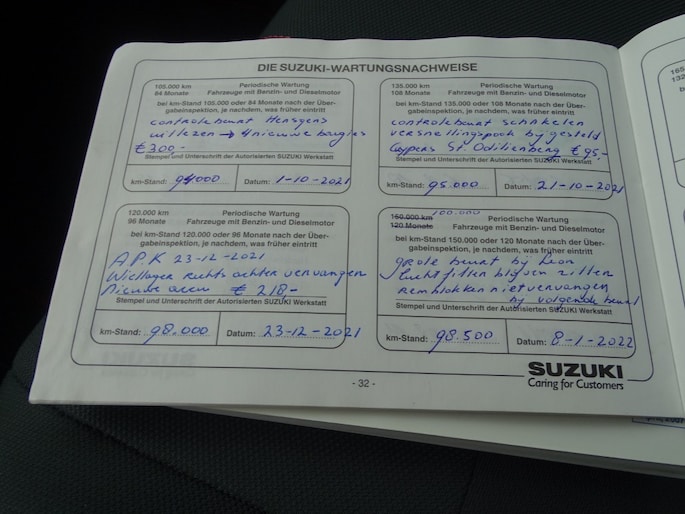 DIE SUZUKI-WARTUNGSNACHWEISE
105.000 km
84 Monate
Periodische Wartung
Fahrzeuge mit Benzin- und Dieselmotor
bei km-Stand 105.000 oder 84 Monate nach der Über-
gabeinspektion, je nachdem, was früher eintritt
controlebeurt Hensgens
uitlezen → 4 nieuwe bougies
€ 300,-
Stempel und Unterschrift der Autorisierten SUZUKI Werkstatt
km-Stand: 94000 Datum: 1-10-2021
135.000 km
108 Monate
Periodische Wartung
Fahrzeuge mit Benzin- und Dieselmotor
bei km-Stand 135.000 oder 108 Monate nach der Über-
gabeinspektion, je nachdem, was früher eintritt
controlebeurt schakelen
versnellingspook bij gesteld
Cuypers St. Odilienberg € 95,-
Stempel und Unterschrift der Autorisierten SUZUKI Werkstatt
km-Stand: 95.000 Datum: 21-10-2021
120.000 km
96 Monate
Periodische Wartung
Fahrzeuge mit Benzin- und Dieselmotor
bei km-Stand 120.000 oder 96 Monate nach der Über-
gabeinspektion, je nachdem, was früher eintritt
A.P.K 23-12-2021
Wiellager rechts achter vervangen
Nieuwe accu € 218,-
Stempel und Unterschrift der Autorisierten SUZUKI Werkstatt
km-Stand: 98.000 Datum: 23-12-2021
150.000 km 100.000
120 Monate
Periodische Wartung
Fahrzeuge mit Benzin- und Dieselmotor
bei km-Stand 150.000 oder 120 Monate nach der Über-
gabeinspektion, je nachdem, was früher eintritt
grote beurt bij Leon
luchtfilter blijven zitten
remblokken niet vervangen
bij volgende beurt
Stempel und Unterschrift der Autorisierten SUZUKI Werkstatt
km-Stand: 98.500 Datum: 8-1-2022
SUZUKI
Caring for Customers
- 32 -